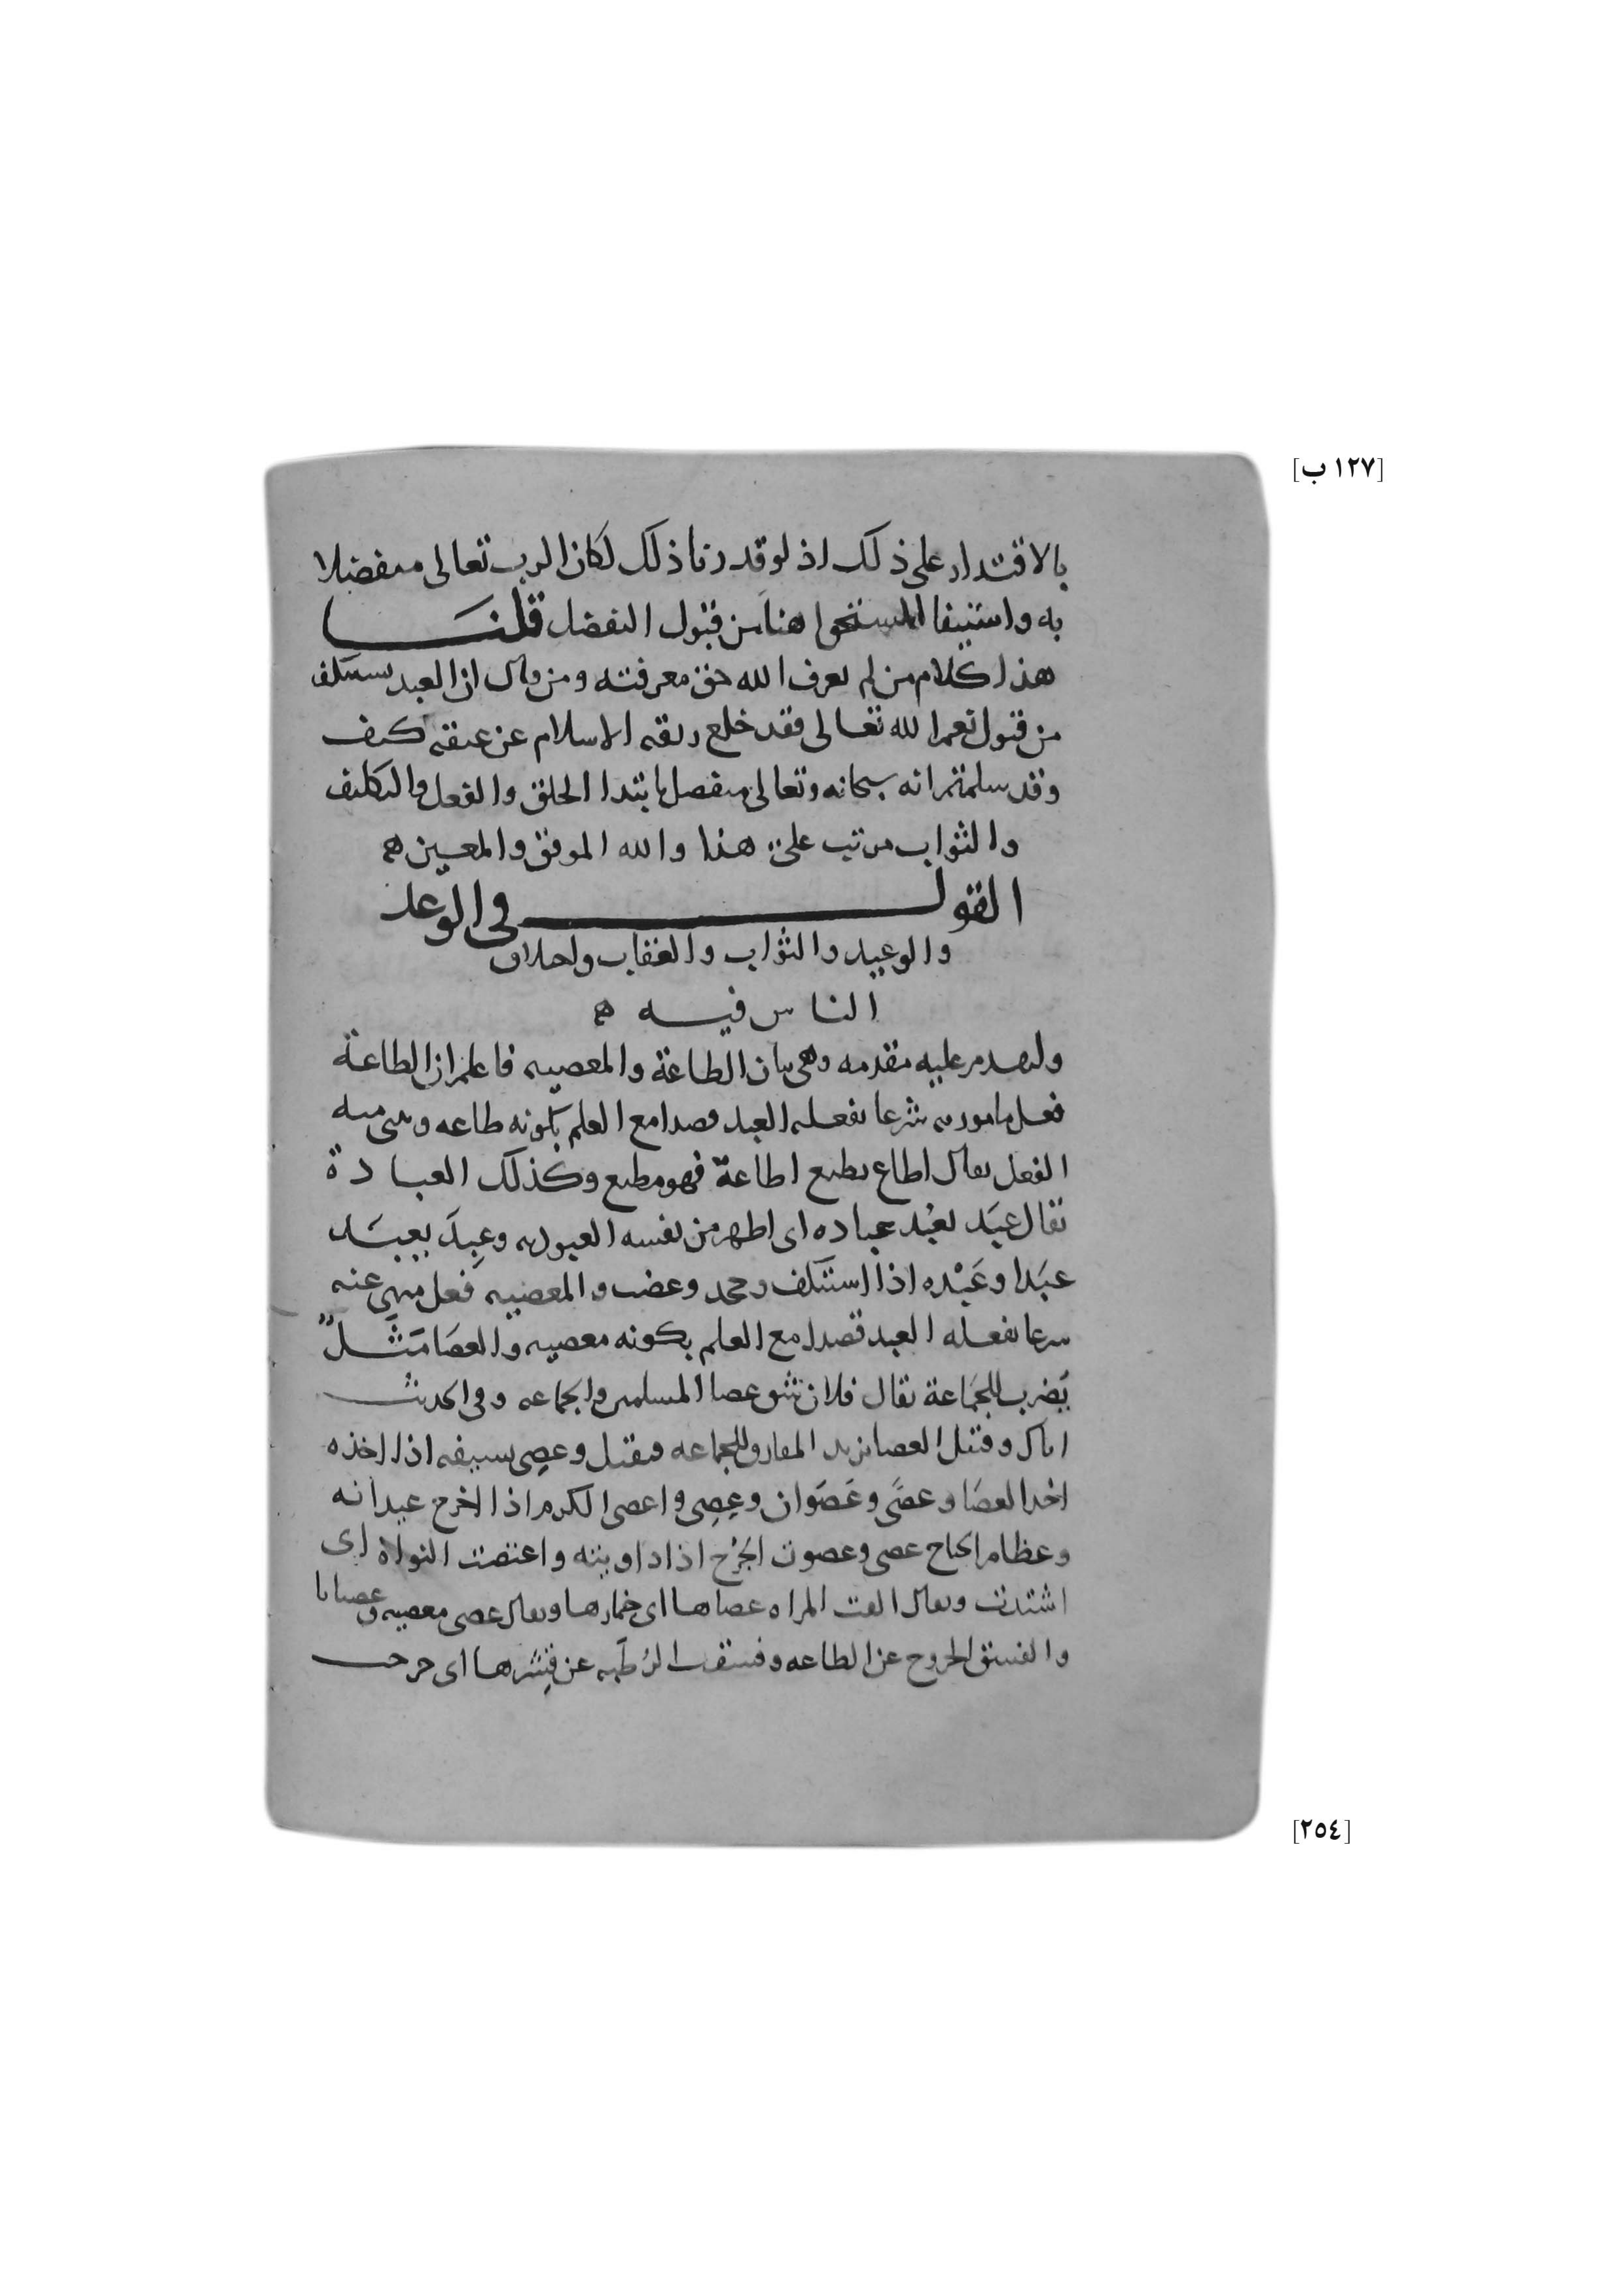 [١٢٧ ب]
بالاقتدار على ذلك اذ لو قدرنا ذلك لكان الرب تعالى متفضلا
به واستنبقا المستحق اهنا من قبول التفضل قلنا
هذا كلام من لم يعرف الله حق معرفته ومن قال ان العبد يستنكف
من قبول نعم الله تعالى فقد خلع ربقه الاسلام عن عنقه كيف
وقد سلمتم انه سبحانه وتعالى متفضل بابتدا الخلق والفعل والتكليف
والثواب مرتب على هذا والله الموفق والمعين ه
القول في الوعد
والوعيد والثواب والعقاب واختلاف
الناس فيه ه
ولنقدم عليه مقدمه وهي بيان الطاعة والمعصيه فاعلم ان الطاعة
فعل مامور به شرعا يفعله العبد قصدا مع العلم بكونه طاعه
الفعل يقال اطاع يطيع اطاعة فهو مطيع وكذلك العبادة
يقال عَبَد يعْبُد عباده اى اظهر من نفسه العبوديه وعَبِدَ يعبَد
عبَدا وعَبْده اذا استنكف وجحد وغضب والمعصيه فعل منهى عنه
شرعا يفعله العبد قصدا مع العلم بكونه معصيه والعصَا مَثَلٌ
يُضرب للجَماعة يقال فلان شق عصا المسلمين والجماعه وفي الحديث
اياك وقتيل العصا يريد المفارق للجماعه فيقتل وعصِى بسيفه اذا اخذه
اخذ العصَا وعصًى وعَصَوان وعِصِى واعصى الكرم اذا اخرج عيدانه
وعظام الجناح عصى وعصوت الجُرْح اذا داويته واعتصت النواة اى
اشتدت ويقال القت المراه عصاها اى خمارها ويقال عصى معصيه وعصيانا
والفسق الخروج عن الطاعه وفسقت الرُطَبه عن قِشرها اى خرجت
[٢٥٤]